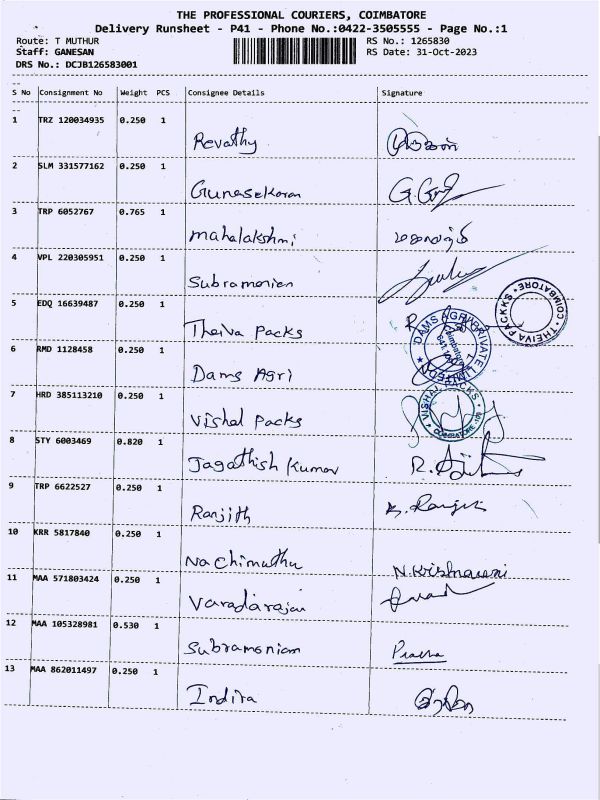 THE PROFESSIONAL COURIERS, COIMBATORE
Delivery Runsheet - P41 - Phone No.:0422-3505555 - Page No.:1
Route: T MUTHUR RS No.: 1265830
Staff: GANESAN RS Date: 31-Oct-2023
DRS No.: DCJB126583001
S No Consignment No Weight PCS Consignee Details Signature
1 TRZ 120034935 0.250 1
Revathy
2 SLM 331577162 0.250 1
Gunasekaran
3 TRP 6052767 0.765 1
mahalakshmi
4 VPL 220305951 0.250 1
Subramanian
5 EDQ 16639487 0.250 1
Theiva Packs
THEIVA PACKKS * COIMBATORE *
6 RMD 1128458 0.250 1
Dams Agri
DAMS AGRI PRIVATE LIMITED
7 HRD 385113210 0.250 1
Vishal Packs
VISHAL PACKS
8 STY 6003469 0.820 1
Jagathish Kumar
9 TRP 6622527 0.250 1
Ranjith
10 KRR 5817840 0.250 1
Nachimuthu N.Krishnaveni
11 MAA 571803424 0.250 1
Varadarajan
12 MAA 105328981 0.530 1
Subramaniam Prabha
13 MAA 862011497 0.250 1
Indira இந்திரா